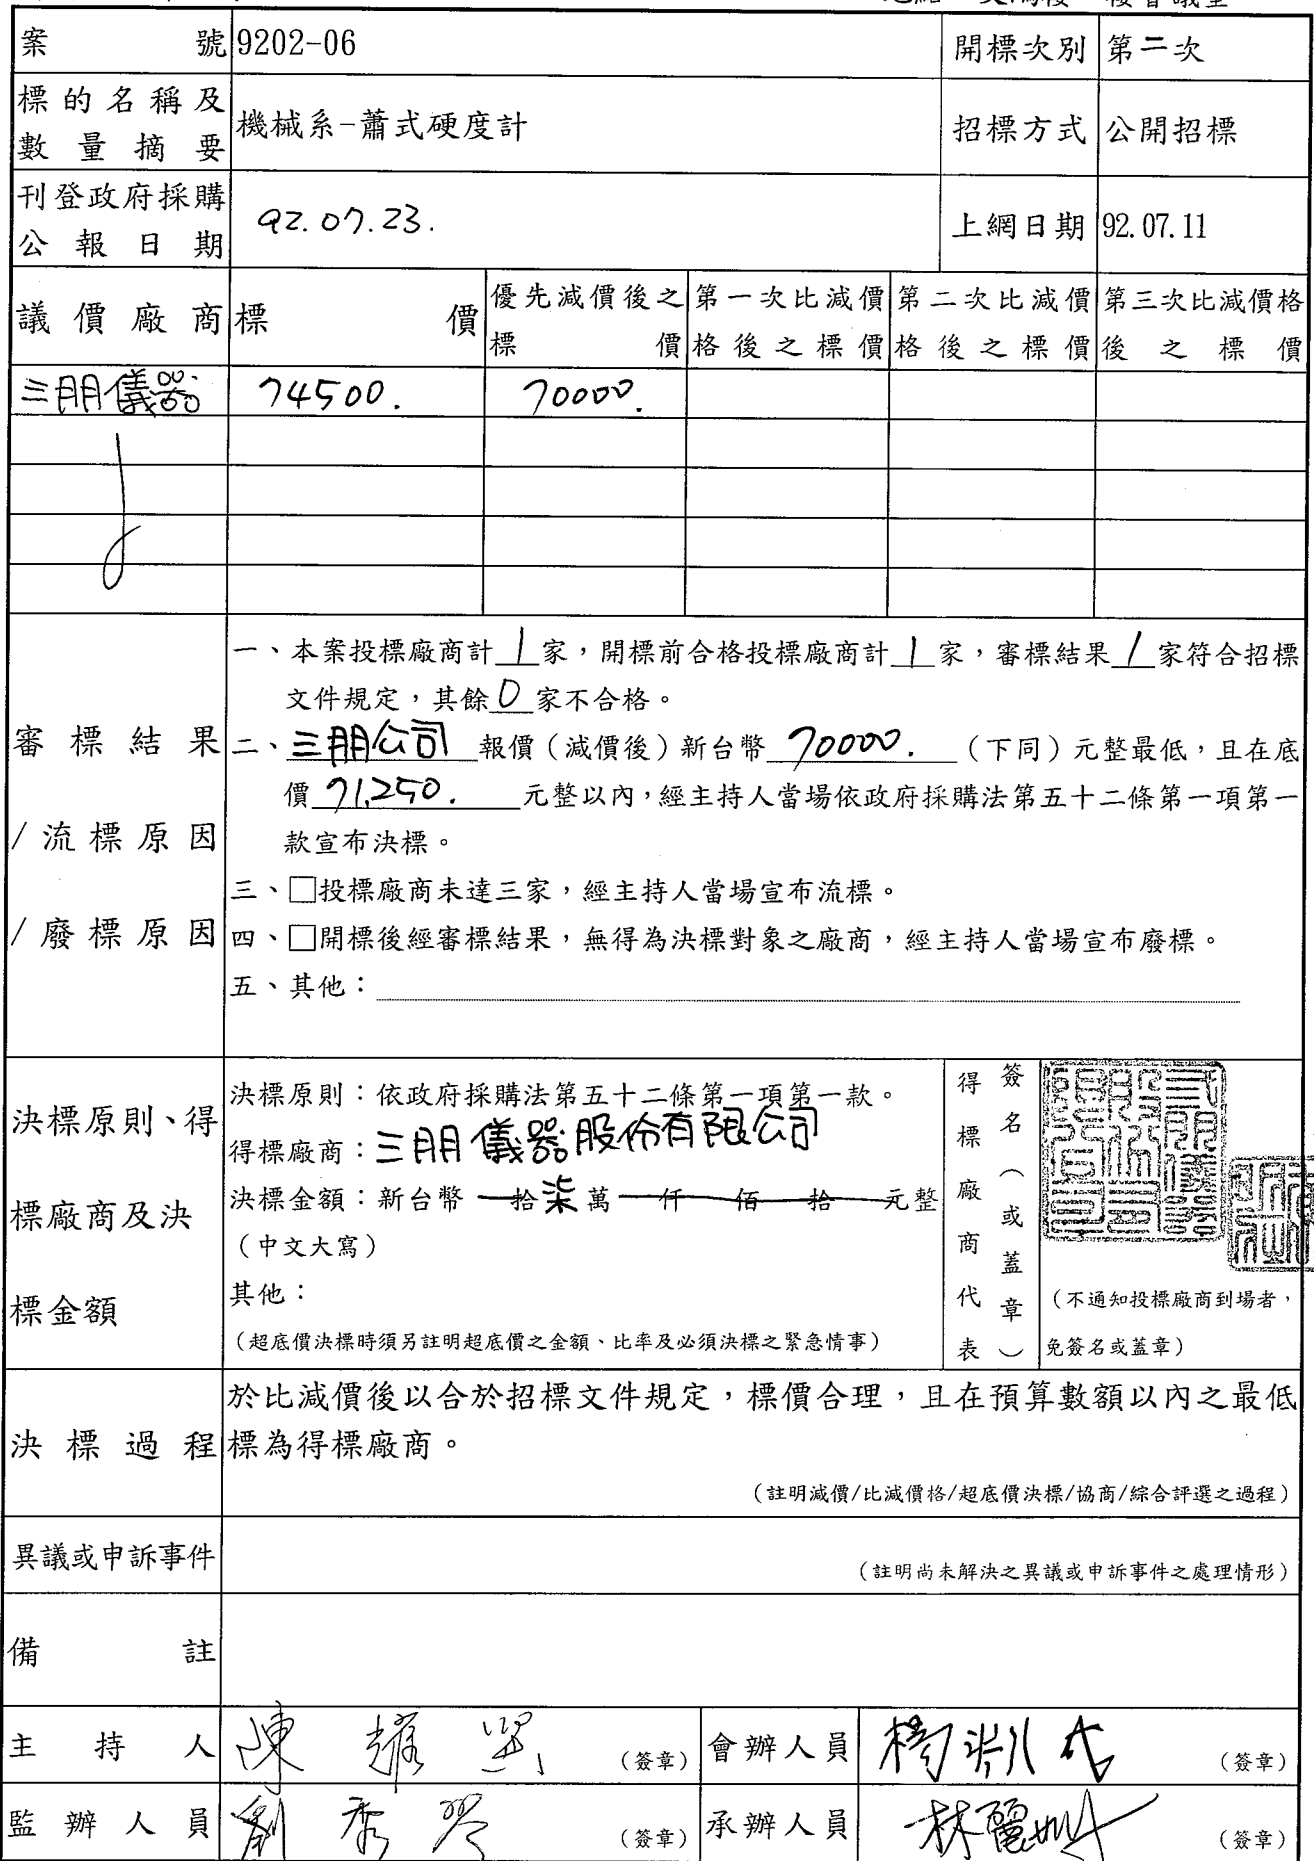 案號 9202-06 開標次別 第二次
標的名稱及
數量摘要
機械系-蕭式硬度計 招標方式 公開招標
刊登政府採購
公報日期
92.07.23. 上網日期 92.07.11
議價廠商 標價 優先減價後之標價 第一次比減價格後之標價 第二次比減價格後之標價 第三次比減價格後之標價
三朋儀器 74500. 70000.
審標結果
/流標原因
/廢標原因
一、本案投標廠商計 1 家，開標前合格投標廠商計 1 家，審標結果 1 家符合招標
文件規定，其餘 0 家不合格。
二、三朋公司 報價（減價後）新台幣 70000. （下同）元整最低，且在底
價 71,250. 元整以內，經主持人當場依政府採購法第五十二條第一項第一
款宣布決標。
三、□投標廠商未達三家，經主持人當場宣布流標。
四、□開標後經審標結果，無得為決標對象之廠商，經主持人當場宣布廢標。
五、其他：
決標原則、得
標廠商及決
標金額
決標原則：依政府採購法第五十二條第一項第一款。
得標廠商：三朋儀器股份有限公司
決標金額：新台幣 拾柒萬 仟 佰 拾 元整
（中文大寫）
其他：
（超底價決標時須另註明超底價之金額、比率及必須決標之緊急情事）
得標廠商代表
簽名（或蓋章）
（不通知投標廠商到場者，
免簽名或蓋章）
決標過程
於比減價後以合於招標文件規定，標價合理，且在預算數額以內之最低
標為得標廠商。
（註明減價/比減價格/超底價決標/協商/綜合評選之過程）
異議或申訴事件
（註明尚未解決之異議或申訴事件之處理情形）
備註
主持人 （簽章） 會辦人員 （簽章）
監辦人員 （簽章） 承辦人員 （簽章）